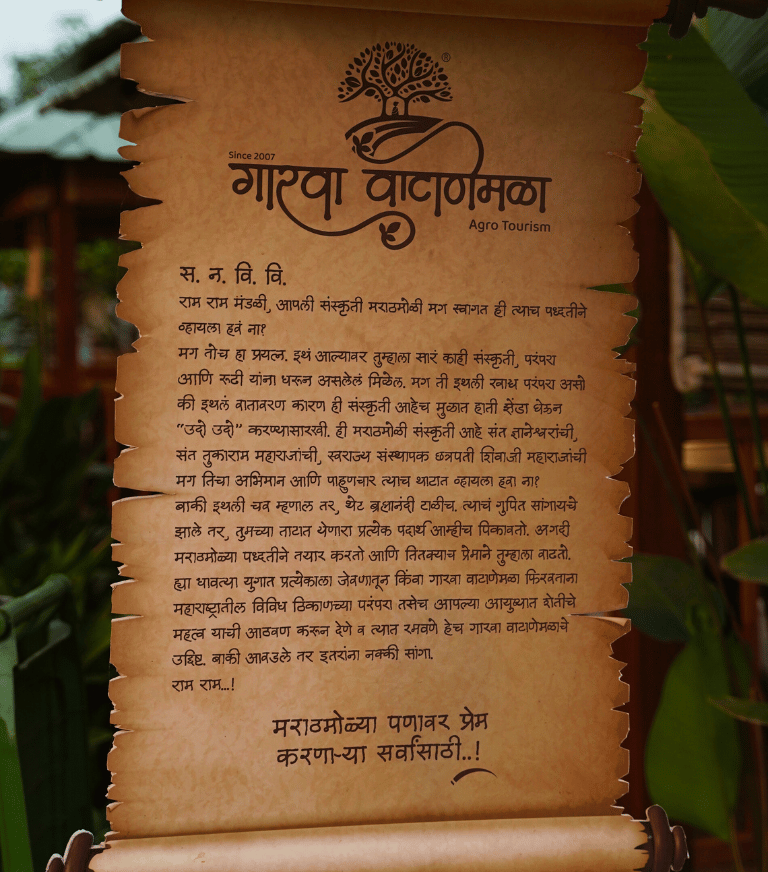 ®
Since 2007
गारवा वाटाणेमळा
Agro Tourism
स. न. वि. वि.
राम राम मंडळी, आपली संस्कृती मराठमोळी मग स्वागत ही त्याच पध्दतीने
व्हायला हवं ना?
मग तोच हा प्रयत्न. इथं आल्यावर तुम्हाला सारं काही संस्कृती, परंपरा
आणि रूढी यांना धरून असलेलं मिळेल. मग ती इथली खाद्य परंपरा असो
की इथलं वातावरण कारण ही संस्कृती आहेच मुळात हाती झेंडा घेऊन
“उदो उदो” करण्यासारखी. ही मराठमोळी संस्कृती आहे संत ज्ञानेश्वरांची,
संत तुकाराम महाराजांची, स्वराज्य संस्थापक छत्रपती शिवाजी महाराजांची
मग तिचा अभिमान आणि पाहुणचार त्याच थाटात व्हायला हवा ना?
बाकी इथली चव म्हणाल तर, थेट ब्रह्मानंदी टाळीच. त्याचं गुपित सांगायचे
झाले तर, तुमच्या ताटात येणारा प्रत्येक पदार्थ आम्हीच पिकावतो. अगदी
मराठमोळ्या पध्दतीने तयार करतो आणि तितक्याच प्रेमाने तुम्हाला वाढतो.
ह्या धावत्या युगात प्रत्येकाला जेवणातून किंवा गारवा वाटाणेमळा फिरवताना
महाराष्ट्रातील विविध ठिकाणच्या परंपरा तसेच आपल्या आयुष्यात शेतीचे
महत्व याची आठवण करून देणे व त्यात रमवणे हेच गारवा वाटाणेमळाचे
उद्दिष्ट. बाकी आवडले तर इतरांना नक्की सांगा.
राम राम...!
मराठमोळ्या पणावर प्रेम
करणाऱ्या सर्वांसाठी..!